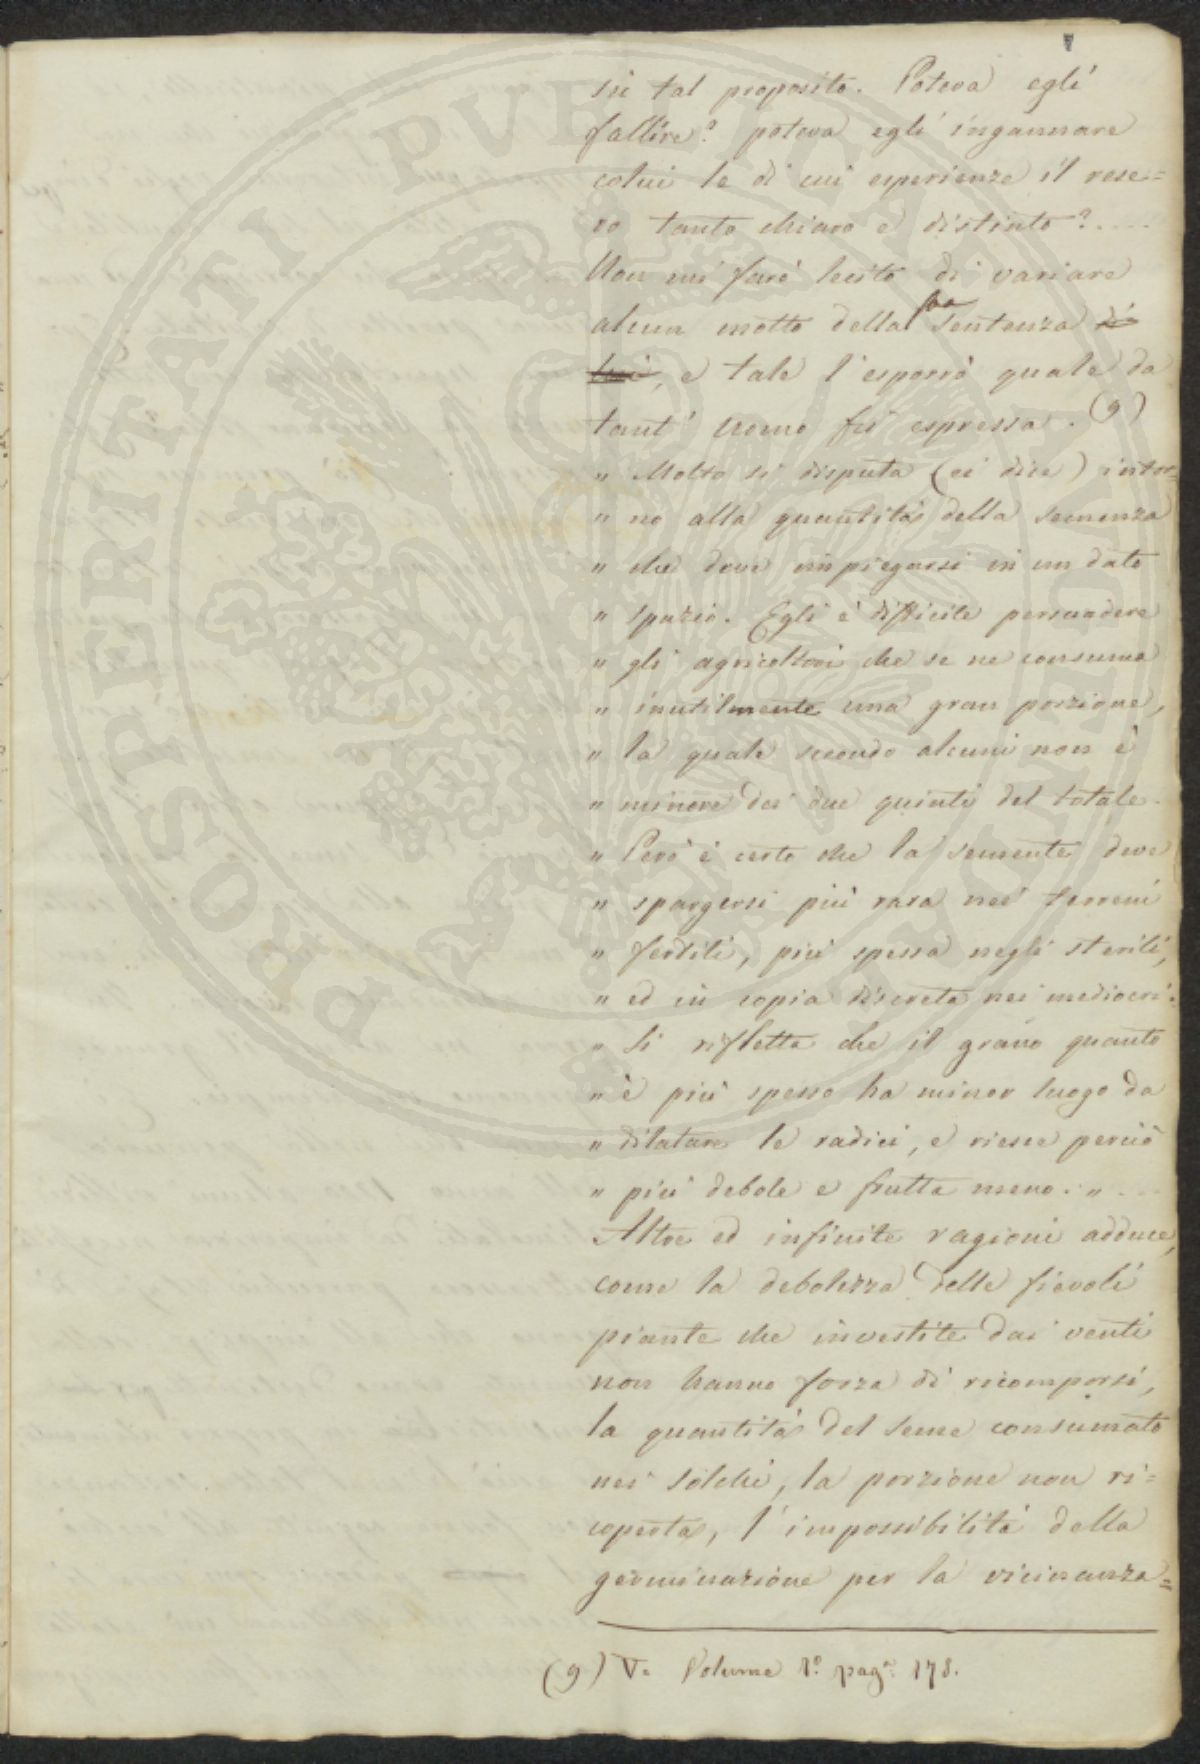 su tal proposito. Poteva egli
fallire? poteva egli ingannare
colui le di cui esperienze il rese=
ro tanto chiaro e distinto?....
Non mi farò lecito di variare
alcun motto della sua sentenza di
lui, e tale l'esporrò quale da
tant' Uomo fu espressa. (9)
" Molto si disputa (ei dice) intor=
" no alla quantità della semenza
" che deve impiegarsi in un dato
" spazio. Egli è difficile persuadere
" gli agricoltori che se ne consuma
" inutilmente una gran porzione,
" la quale secondo alcuni non è
" minore dei due quinti del totale.
" Però è certo che la semente deve
" spargersi più rara nei terreni
" fertili, più spessa negli sterili,
" ed in copia discreta nei mediocri.
" Si rifletta che il grano quanto
" è più spesso ha minor luogo da
" dilatare le radici, e riesce perciò
" più debole e frutta meno. " ...
Altre ed infinite ragioni adduce,
come la debolezza delle fievoli
piante che investite dai venti
non hanno forza di ricomporsi,
la quantità del seme consumato
nei solchi, la porzione non ri=
coperta, l'impossibilità della
germinazione per la vicinanza=
(9) V. Volume 1.º pag.ª 178.
PROSPERITATI PVBLICAE AVGENDAE